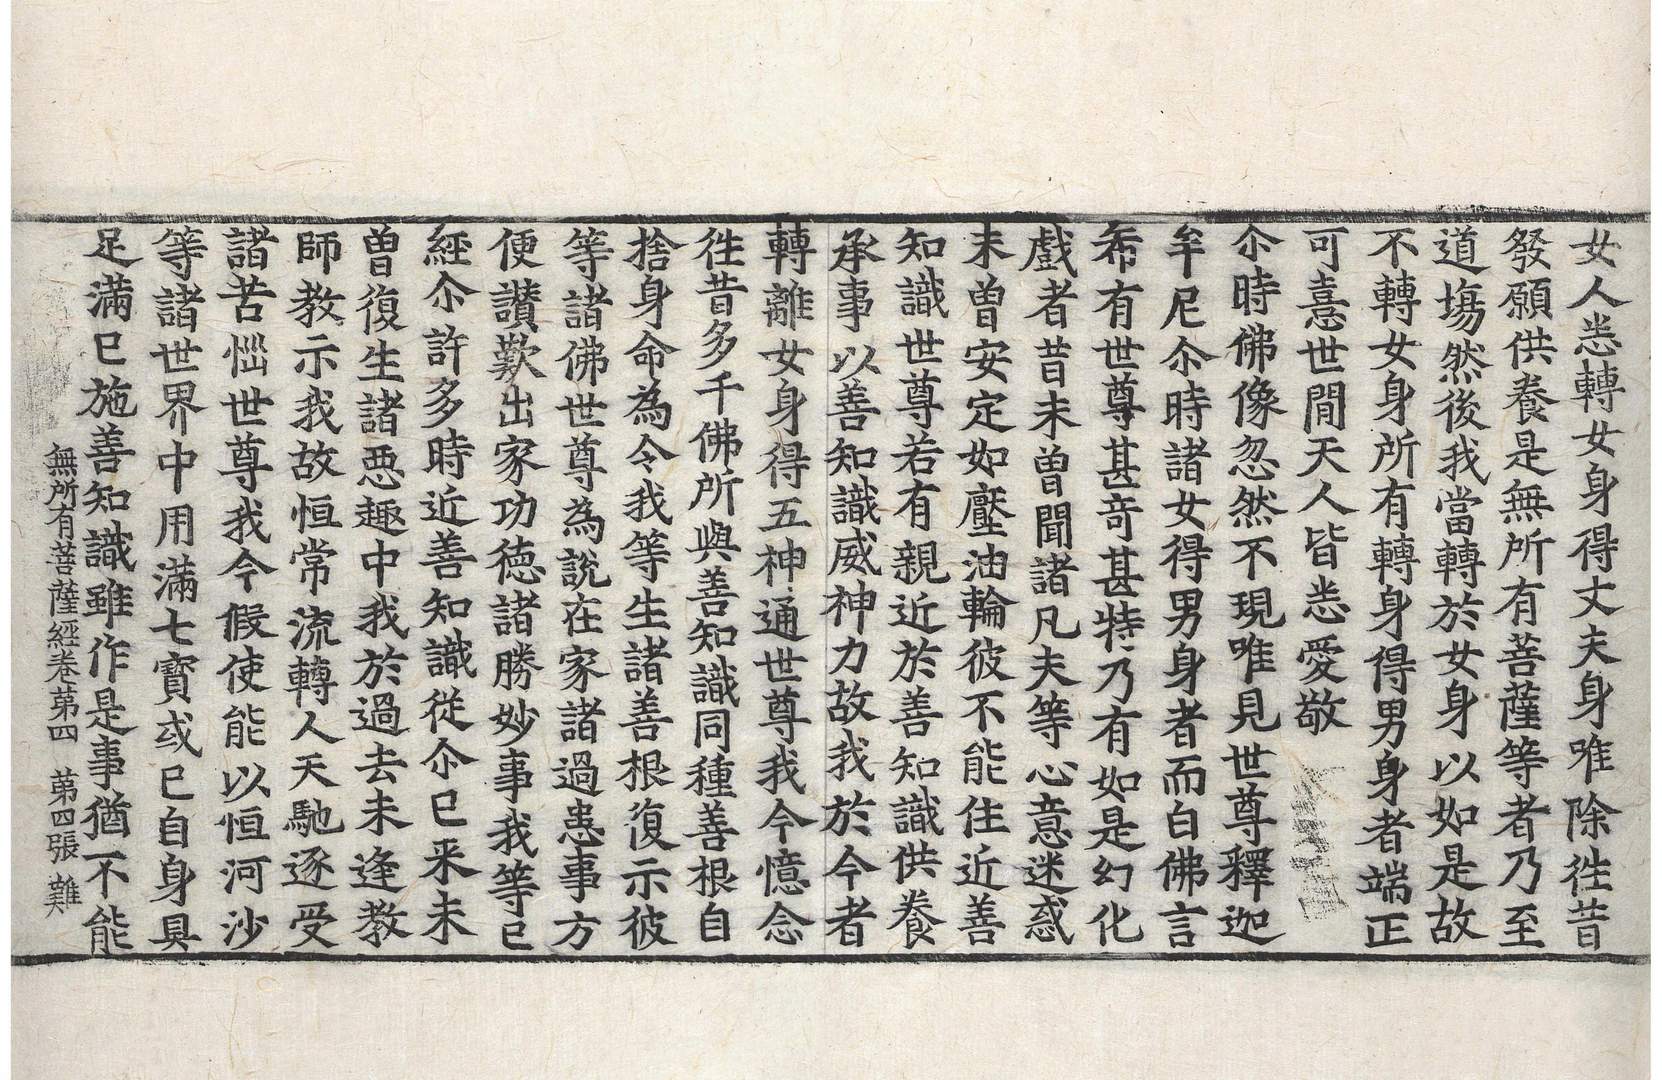 女人悉轉女身得丈夫身唯除徃昔
發願供養是無所有菩薩等者乃至
道塲然後我當轉於女身以如是故
不轉女身所有轉身得男身者端正
可憙世間天人皆悉愛敬
尒時佛像忽然不現唯見世尊釋迦
牟尼尒時諸女得男身者而白佛言
希有世尊甚竒甚特乃有如是幻化
戲者昔未曽聞諸凡夫等心意迷惑
未曽安定如壓油輪彼不能住近善
知識世尊若有親近於善知識供養
承事以善知識威神力故我於今者
轉離女身得五神通世尊我今憶念
徃昔多千佛所與善知識同種善根自
捨身命為令我等生諸善根復示彼
等諸佛世尊為說在家諸過患事方
便讃歎出家功德諸勝妙事我等已
經尒許多時近善知識從尒已来未
曽復生諸惡趣中我於過去未逢教
師教示我故恒常流轉人天馳逐受
諸苦惱世尊我今假使能以恒河沙
等諸世界中用滿七寳或已自身具
足滿已施善知識雖作是事猶不能
無所有菩薩經卷苐四 苐四張 難